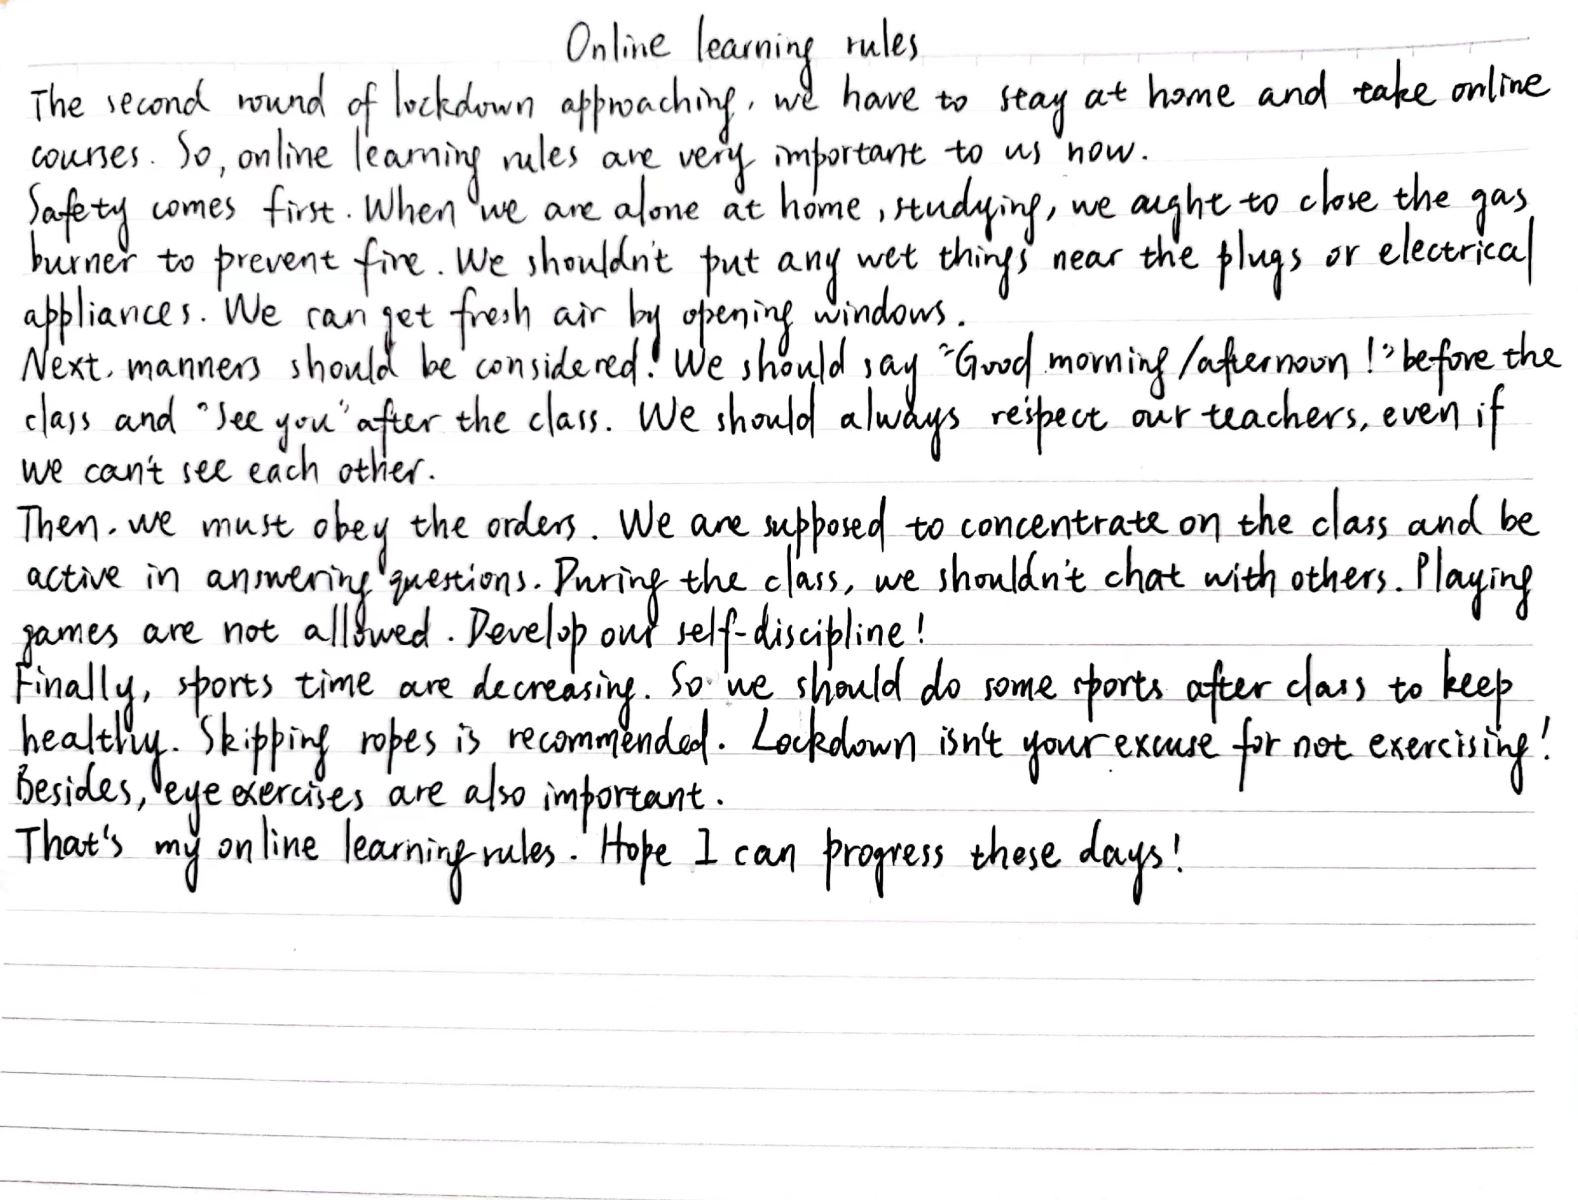 Online learning rules
The second round of lockdown approaching, we have to stay at home and take online
courses. So, online learning rules are very important to us now.
Safety comes first. When we are alone at home, studying, we aught to close the gas
burner to prevent fire. We shouldn't put any wet things near the plugs or electrical
appliances. We can get fresh air by opening windows.
Next, manners should be considered! We should say "Good morning/afternoon!" before the
class and "See you" after the class. We should always respect our teachers, even if
we can't see each other.
Then, we must obey the orders. We are supposed to concentrate on the class and be
active in answering questions. During the class, we shouldn't chat with others. Playing
games are not allowed. Develop our self-discipline!
Finally, sports time are decreasing. So we should do some sports after class to keep
healthy. Skipping ropes is recommended. Lockdown isn't your excuse for not exercising!
Besides, eye exercises are also important.
That's my online learning rules. Hope I can progress these days!